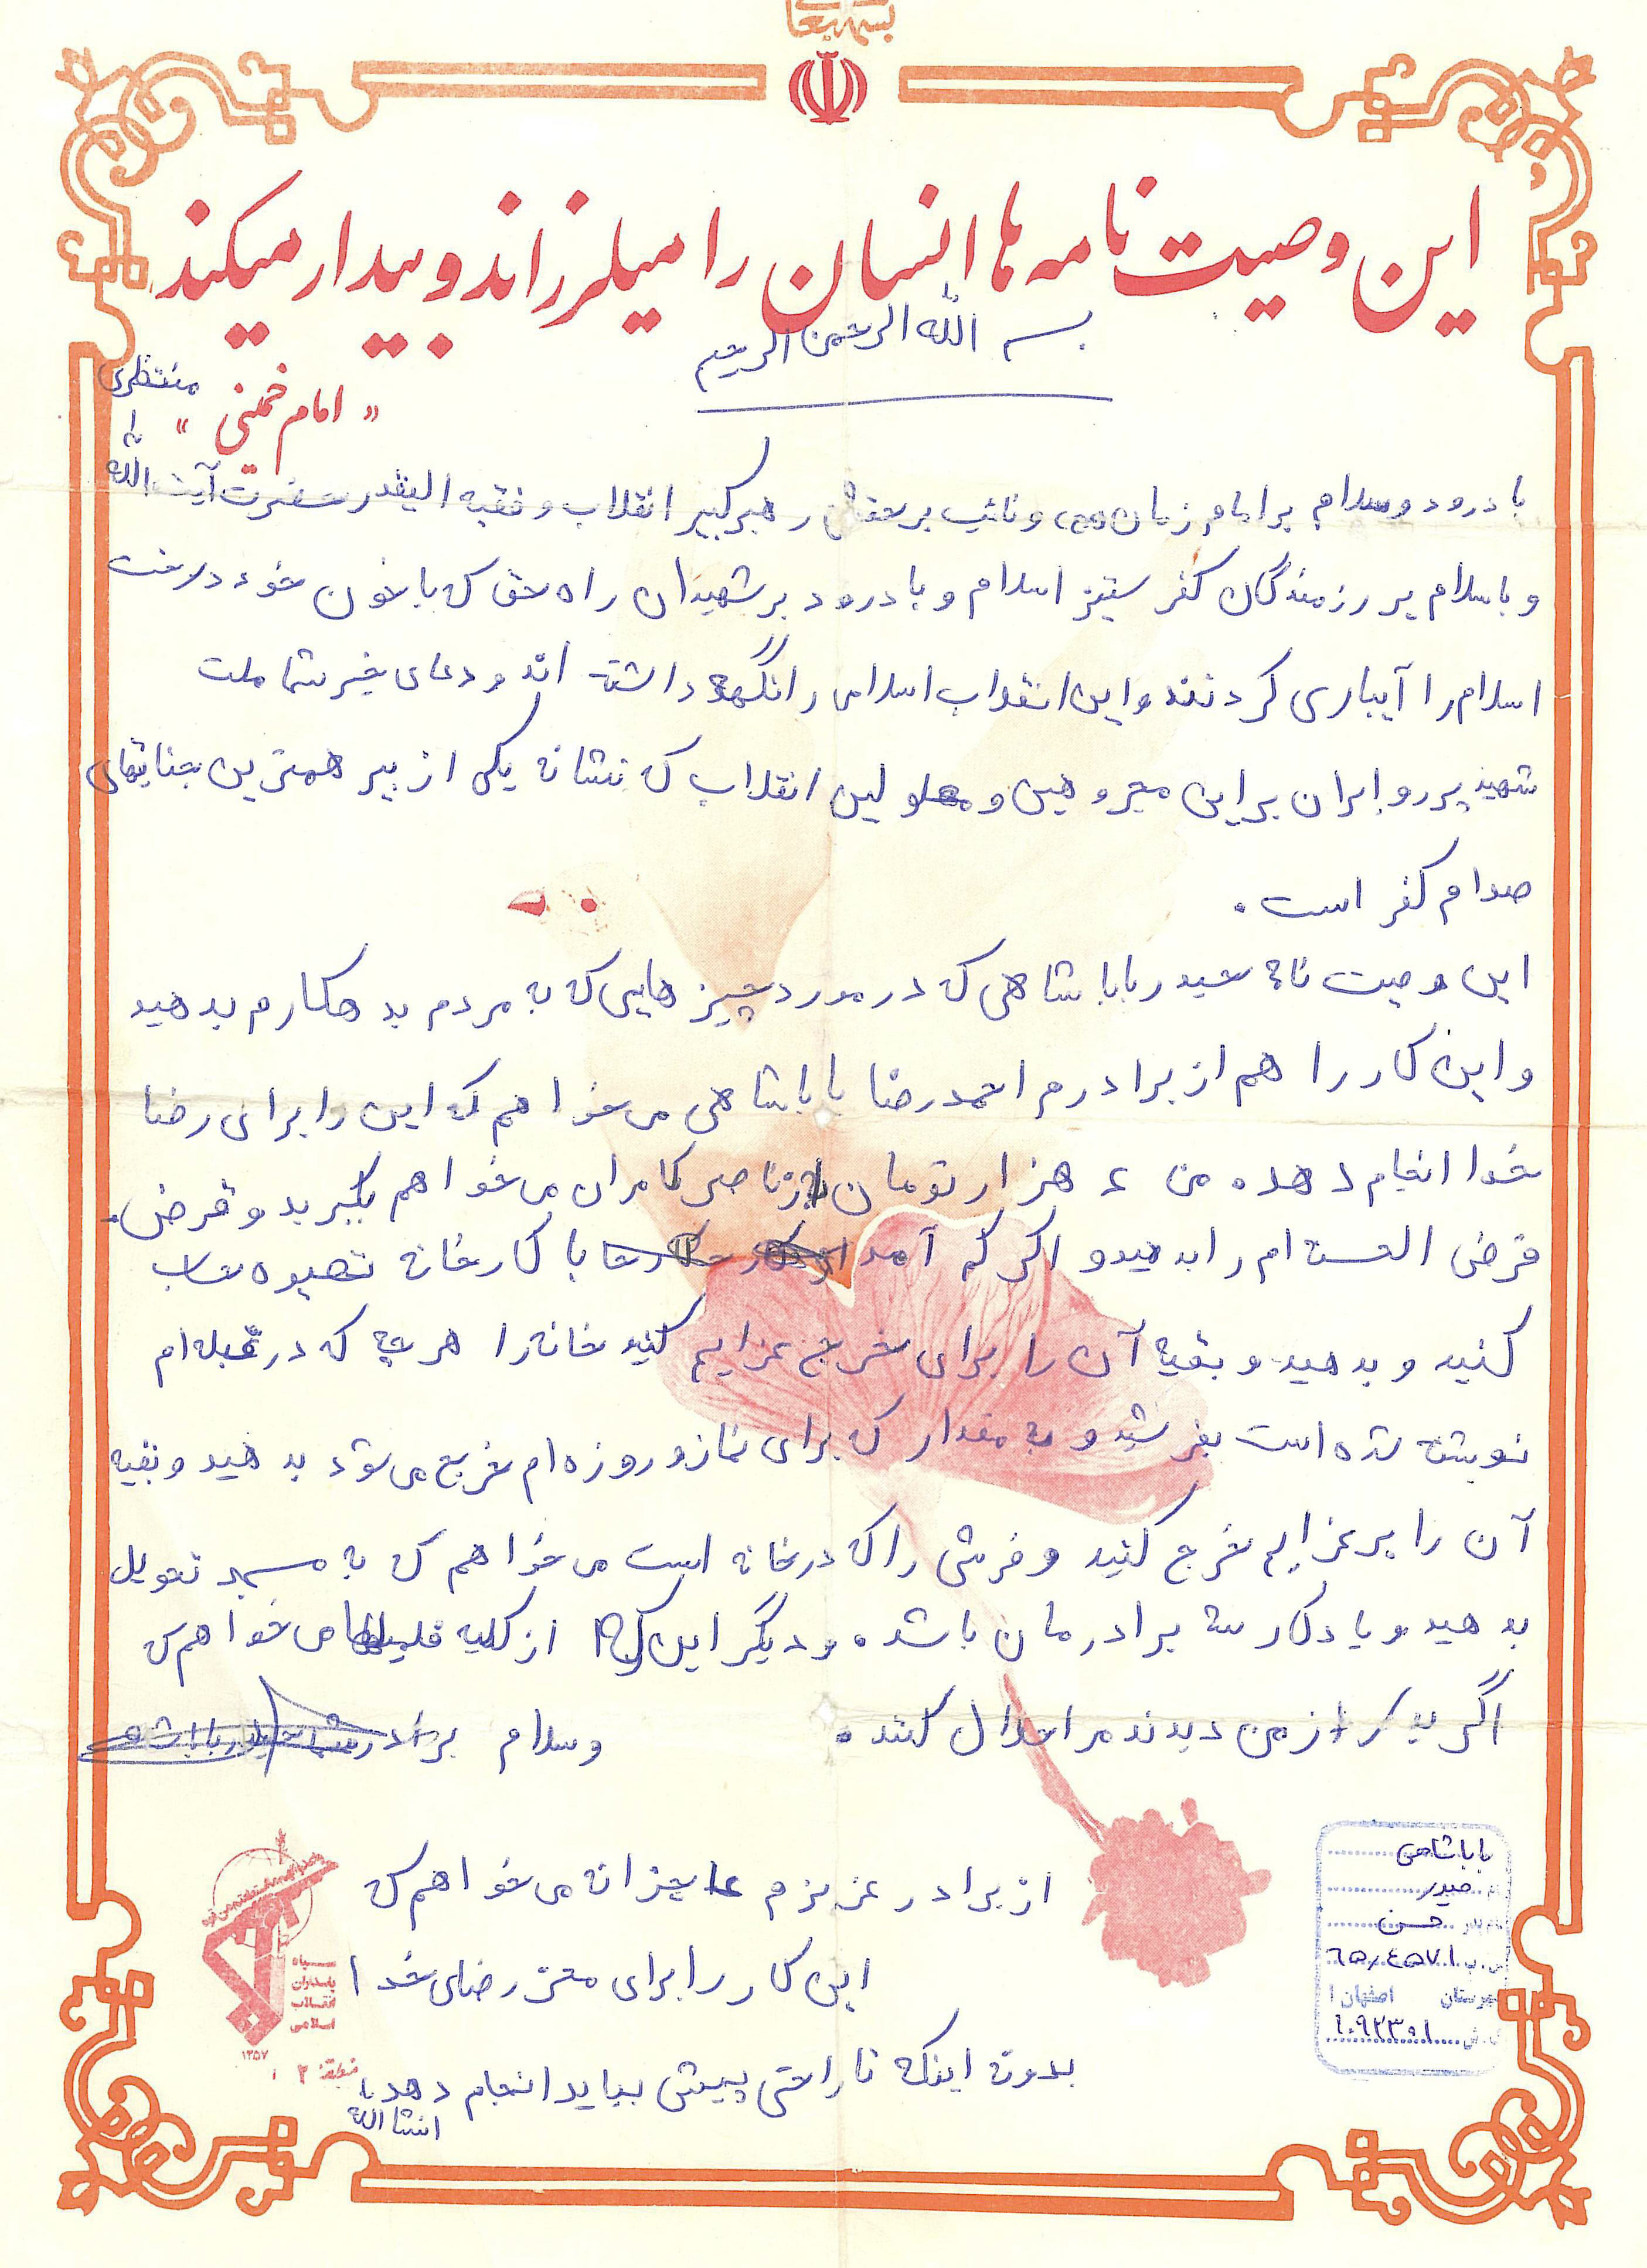 بسمه تعالی
این وصیت نامه ها انسان را میلرزاند و بیدار میکند
«امام خمینی»
بسم الله الرحمن الرحیم
با درود و سلام بر امام زمان (عج) و نائب برحقش رهبر کبیر انقلاب و فقیه الیقدر حضرت آیت الله منتظری
و با سلام بر رزمندگان کفر ستیز اسلام و با درود بر شهیدان راه حق که با خون خود درخت
اسلام را آبیاری کردنند و این انقلاب اسلامی را نگهه داشته اند و دعای خیر شما ملت
شهید پرور ایران بر این مجروحین و معلولین انقلاب که نشانه یکی از بیرحمترین جنایتهای
صدام کفر است .
این وصیت نامه حیدر بابا شاهی که در مورد چیز هایی که به مردم بد هکارم بدهید
و این کار را هم از برادرم احمدرضا بابا شاهی می خواهم که این را برای رضا
خدا انجام دهد . من ۶ هزار تومان از ناصر کامران می خواهم بگیرید و قرض
قرض الحسنه ام را بدهیدو اگر که آمد با کارخانه تصویه حساب
کنید و بدهید و بقیه آن را برای خرج عزایم کنید خانه را هر چه که در قباله ام
نوشته شده است بفرشید و به مقدار که برای نماز و روزه ام خرج می شود بدهید و بقیه
آن را بر عزایم خرج کنید و فرشی را که در خانه است می خواهم که به مسجد تحویل
بدهید و یادگار سه برادرمان باشد . و دیگر این که از کلیه فامیلها می خواهم که
اگر بدی از من دیدند مرا حلال کنند . وسلام برادر
از برادر عزیزم عاجزانه می خواهم که
این کار را برای محض رضای خدا
بدون اینکه ناراحتی پیش بیاید انجام دهد .
انشا الله
بابا شاهی
نام حیدر
نام پدر حسن
۶۵/۴۵۷۱
شهرستان اصفهان ۱
۱۰۹۲۳۰۱
سپاه
پاسداران
انقلاب
اسلامی
۱۳۵۷
منطقه ۲